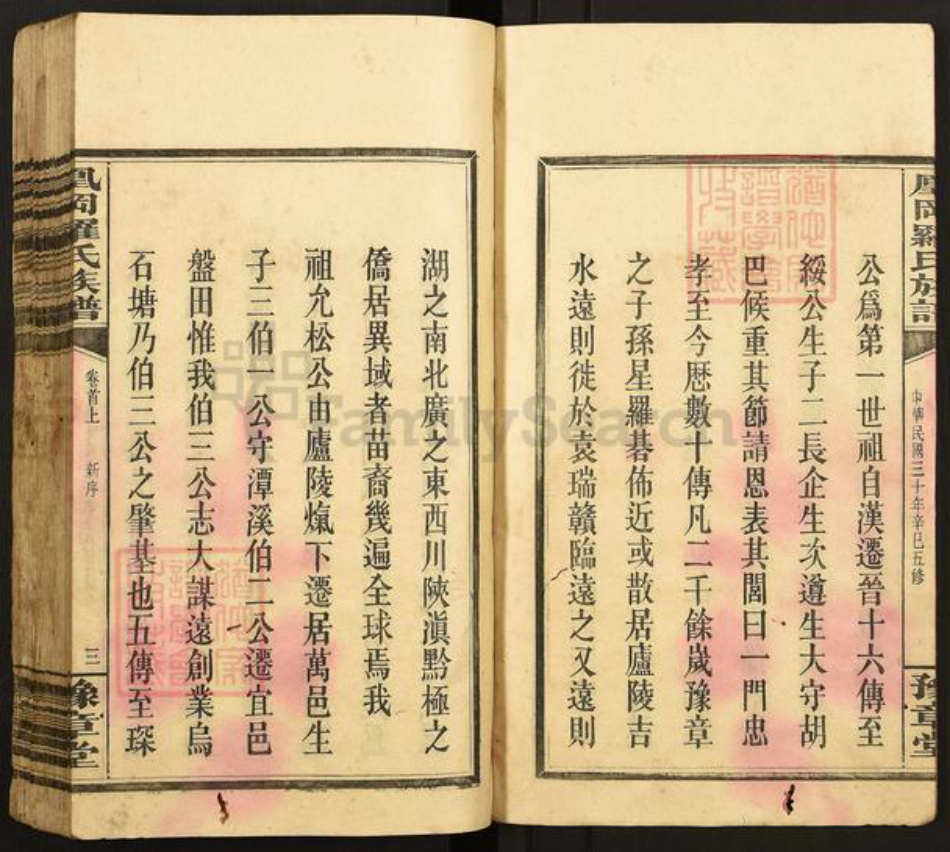 鳳岡羅氏族譜
中華民國三十年辛巳五修
豫章堂
公爲第一世祖自漢遷晉十六傳至
綏公生子二長企生次遵生大守胡
巴候重其節請恩表其閭曰一門忠
孝至今歷數十傳凡二千餘歲豫章
之子孫星羅碁佈近或散居廬陵吉
水遠則徙於袁瑞贛臨遠之又遠則
湖之南北廣之東西川陝滇黔極之
僑居異域者苗裔幾遍全球焉我
祖允松公由廬陵爌下遷居萬邑生
子三伯一公守潭溪伯二公遷宜邑
盤田惟我伯三公志大謀遠創業烏
石塘乃伯三公之肇基也五傳至琛
鳳岡羅氏族譜
卷首上
新序
三
豫章堂
FamilySearch